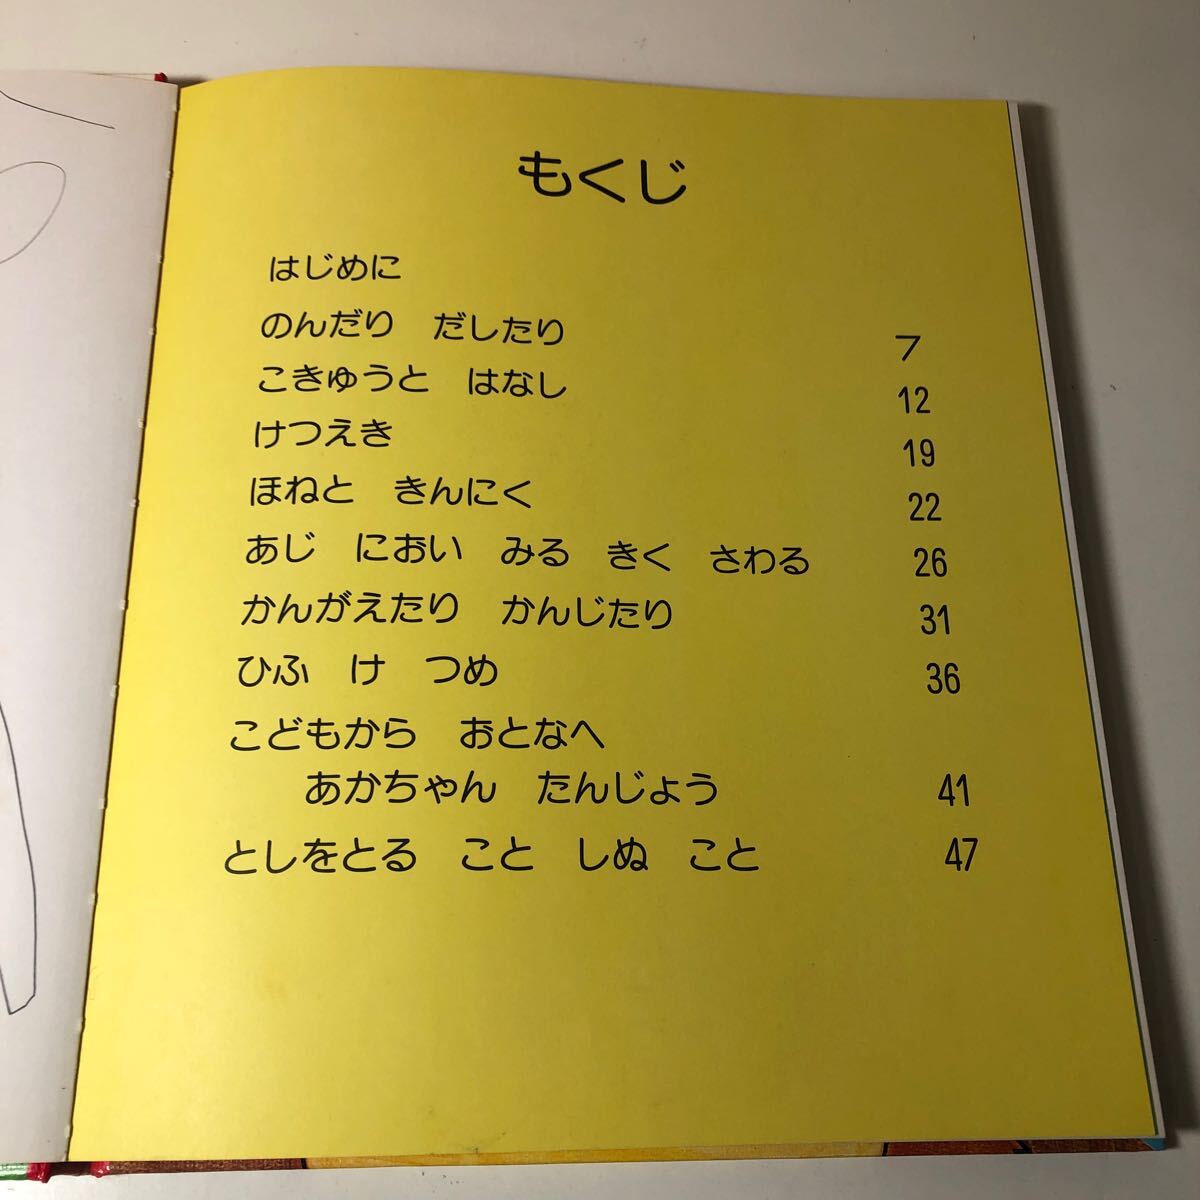 もくじ
はじめに
のんだり だしたり 7
こきゅうと はなし 12
けつえき 19
ほねと きんにく 22
あじ におい みる きく さわる 26
かんがえたり かんじたり 31
ひふ け つめ 36
こどもから おとなへ
あかちゃん たんじょう 41
としをとる こと しぬ こと 47